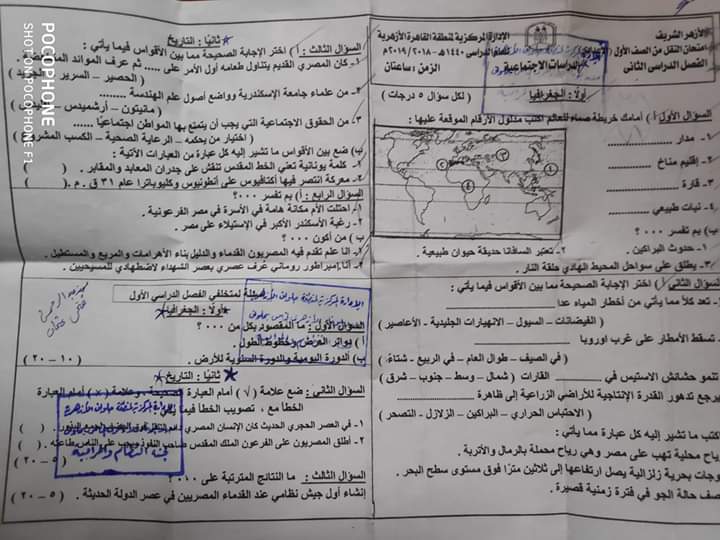 الأزهر الشريف
الإدارة المركزية لمنطقة القاهرة الأزهرية
امتحان النقل من الصف الأول
للعام الدراسي ١٤٤٠هـ - ٢٠١٨/٢٠١٩م
الفصل الدراسي الثاني
الدراسات الاجتماعية
الزمن: ساعتان
أولًا: الجغرافيا
(لكل سؤال ٥ درجات)
السؤال الأول أ) أمامك خريطة صماء للعالم اكتب مدلول الأرقام الموقعة عليها :
١- مدار ..........
٢- إقليم مناخ ..........
٣- قارة ..........
٤- نبات طبيعي ..........
ب) بم تفسر ٠٠٠؟
١- حدوث البراكين .
٢- تعتبر السافانا حديقة حيوان طبيعية .
٣- يطلق على سواحل المحيط الهادي حلقة النار .
السؤال الثاني أ) اختر الإجابة الصحيحة مما بين الأقواس فيما يأتي :
- تعد كلاً مما يأتي من أخطار المياه عدا
(الفيضانات – السيول – الانهيارات الجليدية - الأعاصير )
تسقط الأمطار على غرب اوروبا
( في الصيف – طوال العام – في الربيع - شتاءً )
تنمو حشائش الاستبس في .......... القارات (شمال – وسط – جنوب – شرق )
يرجع تدهور القدرة الإنتاجية للأراضي الزراعية إلى ظاهرة ..........
( الاحتباس الحراري – البراكين – الزلازل – التصحر )
اكتب ما تشير إليه كل عبارة مما يأتي :
رياح محلية تهب على مصر وهي رياح محملة بالرمال والأتربة .
موجات بحرية زلزالية يصل ارتفاعها إلى ثلاثين مترًا فوق مستوى سطح البحر .
وصف حالة الجو في فترة زمنية قصيرة .
ثانيًا : التاريخ
السؤال الثالث : أ ) اختر الإجابة الصحيحة مما بين الأقواس فيما يأتي :
١- كان المصري القديم يتناول طعامه أول الأمر على ..... ثم عرف الموائد
( الحصير – السرير –
٢- من علماء جامعة الإسكندرية وواضع أصول علم الهندسة ........
( مانيتون – أرشميدس –
٣- من الحقوق الاجتماعية التي يجب أن يتمتع بها المواطن اجتماعيًا
( اختيار من يحكمه – الرعاية الصحية – الكسب المشروع
ب) ضع بين الأقواس ما تشير إليه كل عبارة من العبارات الآتية :
١- كلمة يونانية تعني الخط المقدس تنقش على جدران المعابد والمقابر . ( )
٢- معركة انتصر فيها أكتافيوس على أنطونيوس وكليوباترا عام ٣١ ق . م . ( )
السؤال الرابع : أ ) بم تفسر ٠٠٠؟
١- احتلت الأم مكانة هامة في الأسرة في مصر الفرعونية .
٢- رغبة الأسكندر الأكبر في الإستيلاء على مصر .
ب ) من أكون ٠٠٠؟
١- أنا علم تقدم فيه المصريون القدماء والدليل بناء الأهرامات والمربع والمستطيل .
٢- أنا إمبراطور روماني عُرف عصري بعصر الشهداء لاضطهادي للمسيحيين .
أسئلة لمتخلفي الفصل الدراسي الأول
أولاً : الجغرافيا
السؤال الأول : ما المقصود بكل من ٠٠٠؟
أ ) دوائر العرض وخطوط الطول .
ب ) الدورة اليومية والدورة السنوية للأرض . ( ١٠ – ٢٠ )
ثانيًا : التاريخ
السؤال الثاني : ضع علامة ( √ ) أمام العبارة الصحيحة ، وعلامة ( × ) أمام العبارة
الخطأ مع تصويب الخطأ فيما
١- في العصر الحجري الحديث كان الإنسان المصري
٢- أطلق المصريون على الفرعون الملك المقدس صاحب النفوذ ويجب على الناس طاعته . ( )
( ٥ – ٢٠ )
السؤال الثالث : ما النتائج المترتبة على ٠٠٠؟
إنشاء أول جيش نظامي عند القدماء المصريين في عصر الدولة الحديثة . ( ٥ – ٢٠ )
POCOPHONE
SHOT ON POCOPHONE F1